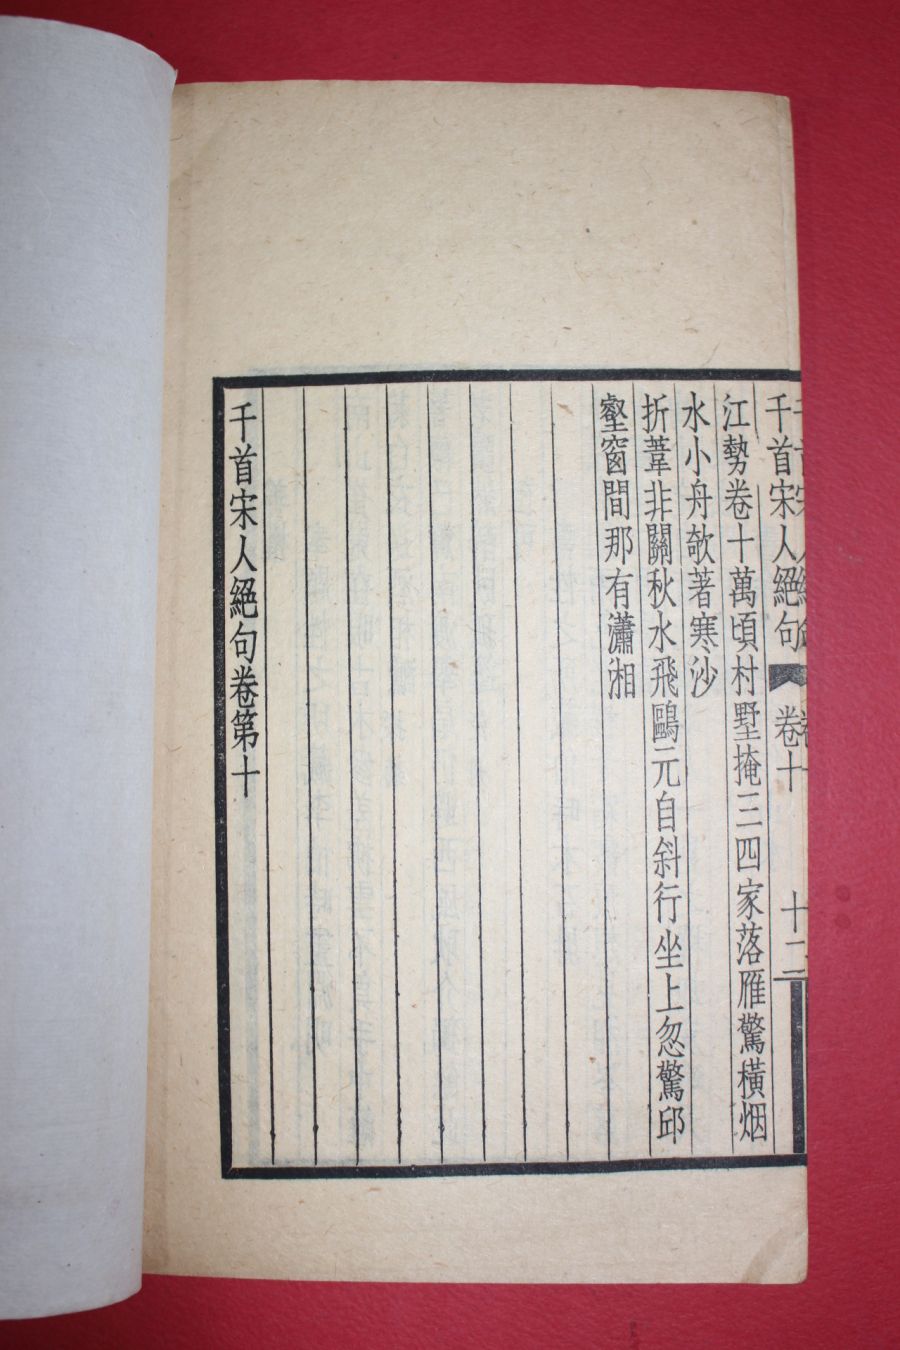 千首宋人絕句 卷十 十二
江勢卷十萬頃村墅掩三四家落雁驚橫烟
水小舟欹著寒沙
折葦非關秋水飛鷗元自斜行坐上忽驚邱
壑窗間那有瀟湘
千首宋人絕句卷第十